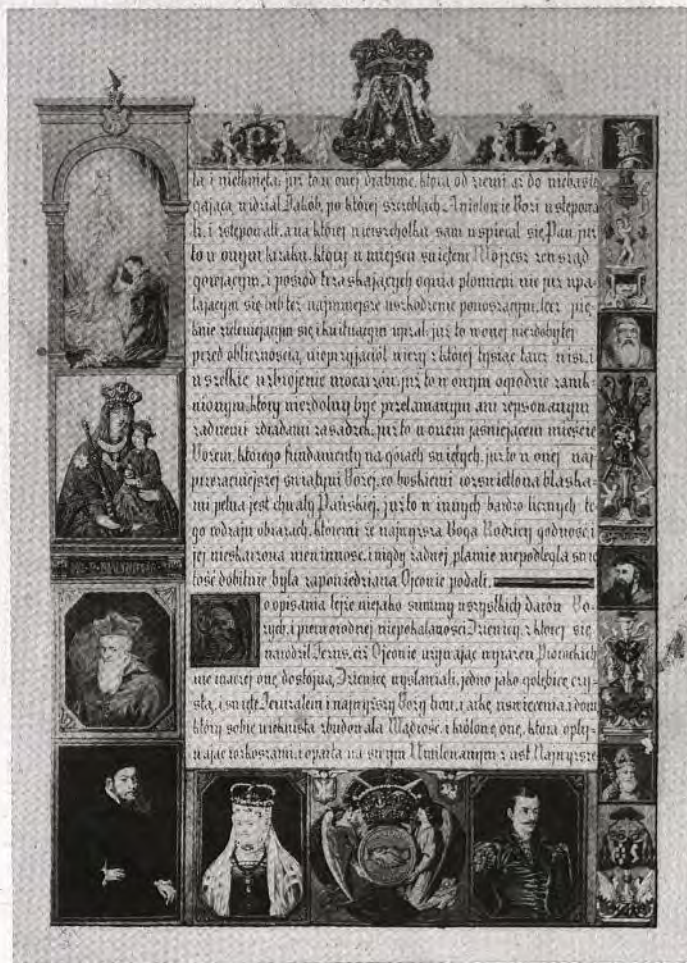 P M L
ta i nietknięta, już to w onej drabinie, którą od ziemi aż do nieba się
gającą widział Jakób, po której szczeblach Aniołowie Boży wstępowa
li, i zstępowali, a na której wierzchołku sam wspierał się Pan, już
to w onym krzaku, który w miejscu świętem Mojżesz zewsząd
gorejącym, i pośród trzaskających ognia płomieni nie już upa-
lającym się lub też najmniejsze uszkodzenie ponoszącym, lecz pię
knie zieleniejącym się i kwitnącym ujrzał, już to w onej niezdobytej
przed oblicznością nieprzyjaciół wieży z której tysiąc tarcz wisi, i
wszelkie uzbrojenie mocarzów, już to w onym ogrodzie zamk-
nionym, który niezdolny być przełamanym ani zepsowanym
żadnemi zdradami zasadzek, już to w onem jaśniejącem mieście
Bożem, którego fundamenty na górach świętych, już to w onej naj
przezacniejszej świątyni Bożej, co boskiemi rozświetlona blaska-
mi pełna jest chwały Pańskiej, już to w innych bardzo licznych te
go rodzaju obrazach, któremi że najwyższa Boga Rodzicy godność, i
jej nieskażona niewinność, i nigdy żadnej plamie niepodległa świę
tość dobitnie była zapowiedziana Ojcowie podali.
o opisania tejże niejako summy wszystkich darów Bo-
żych, i pierworodnej niepokalaności Dziewicy, z której się
narodził Jezus, ciż Ojcowie używając wyrażeń Prorockich
nie inaczej onę dostojną Dziewicę wysławiali, jedno jako gołębicę czy-
stą, i święte Jeruzalem i najwyższy Boży tron, i arkę uświęcenia i dom
który sobie wiekuista zbudowała Mądrość, i królowę onę, która opły-
wając rozkoszami, i oparta na swym Umiłowanym z ust Najwyższe